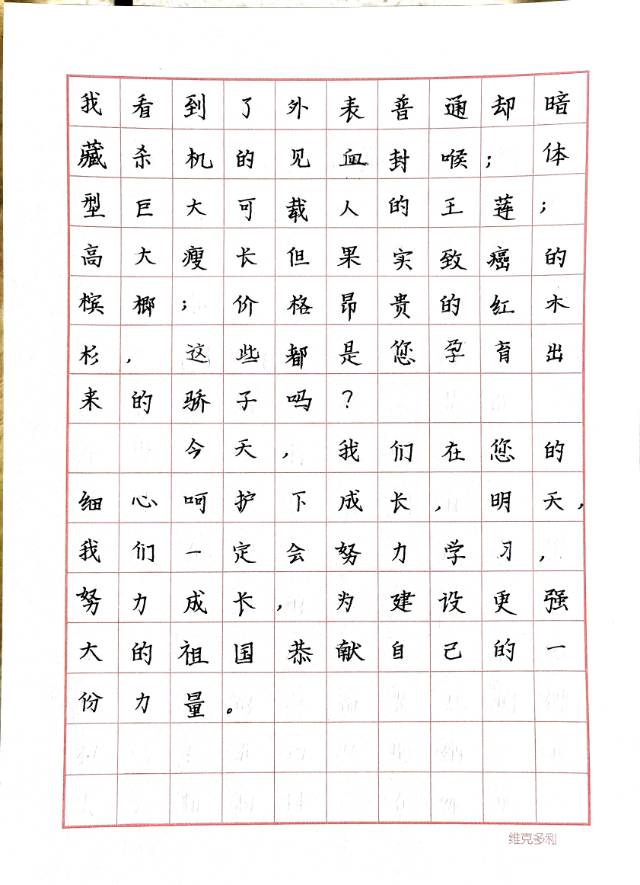 我看到了外表普通却暗
藏杀机的见血封喉；体
型巨大可载人的王莲；
高大瘦长但果实致癌的
槟榔；价格昂贵的红木
杉，这些都是您孕育出
来的骄子吗？
今天，我们在您的
细心呵护下成长，明天，
我们一定会努力学习，
努力成长，为建设更强
大的祖国恭献自己的一
份力量。
维克多利